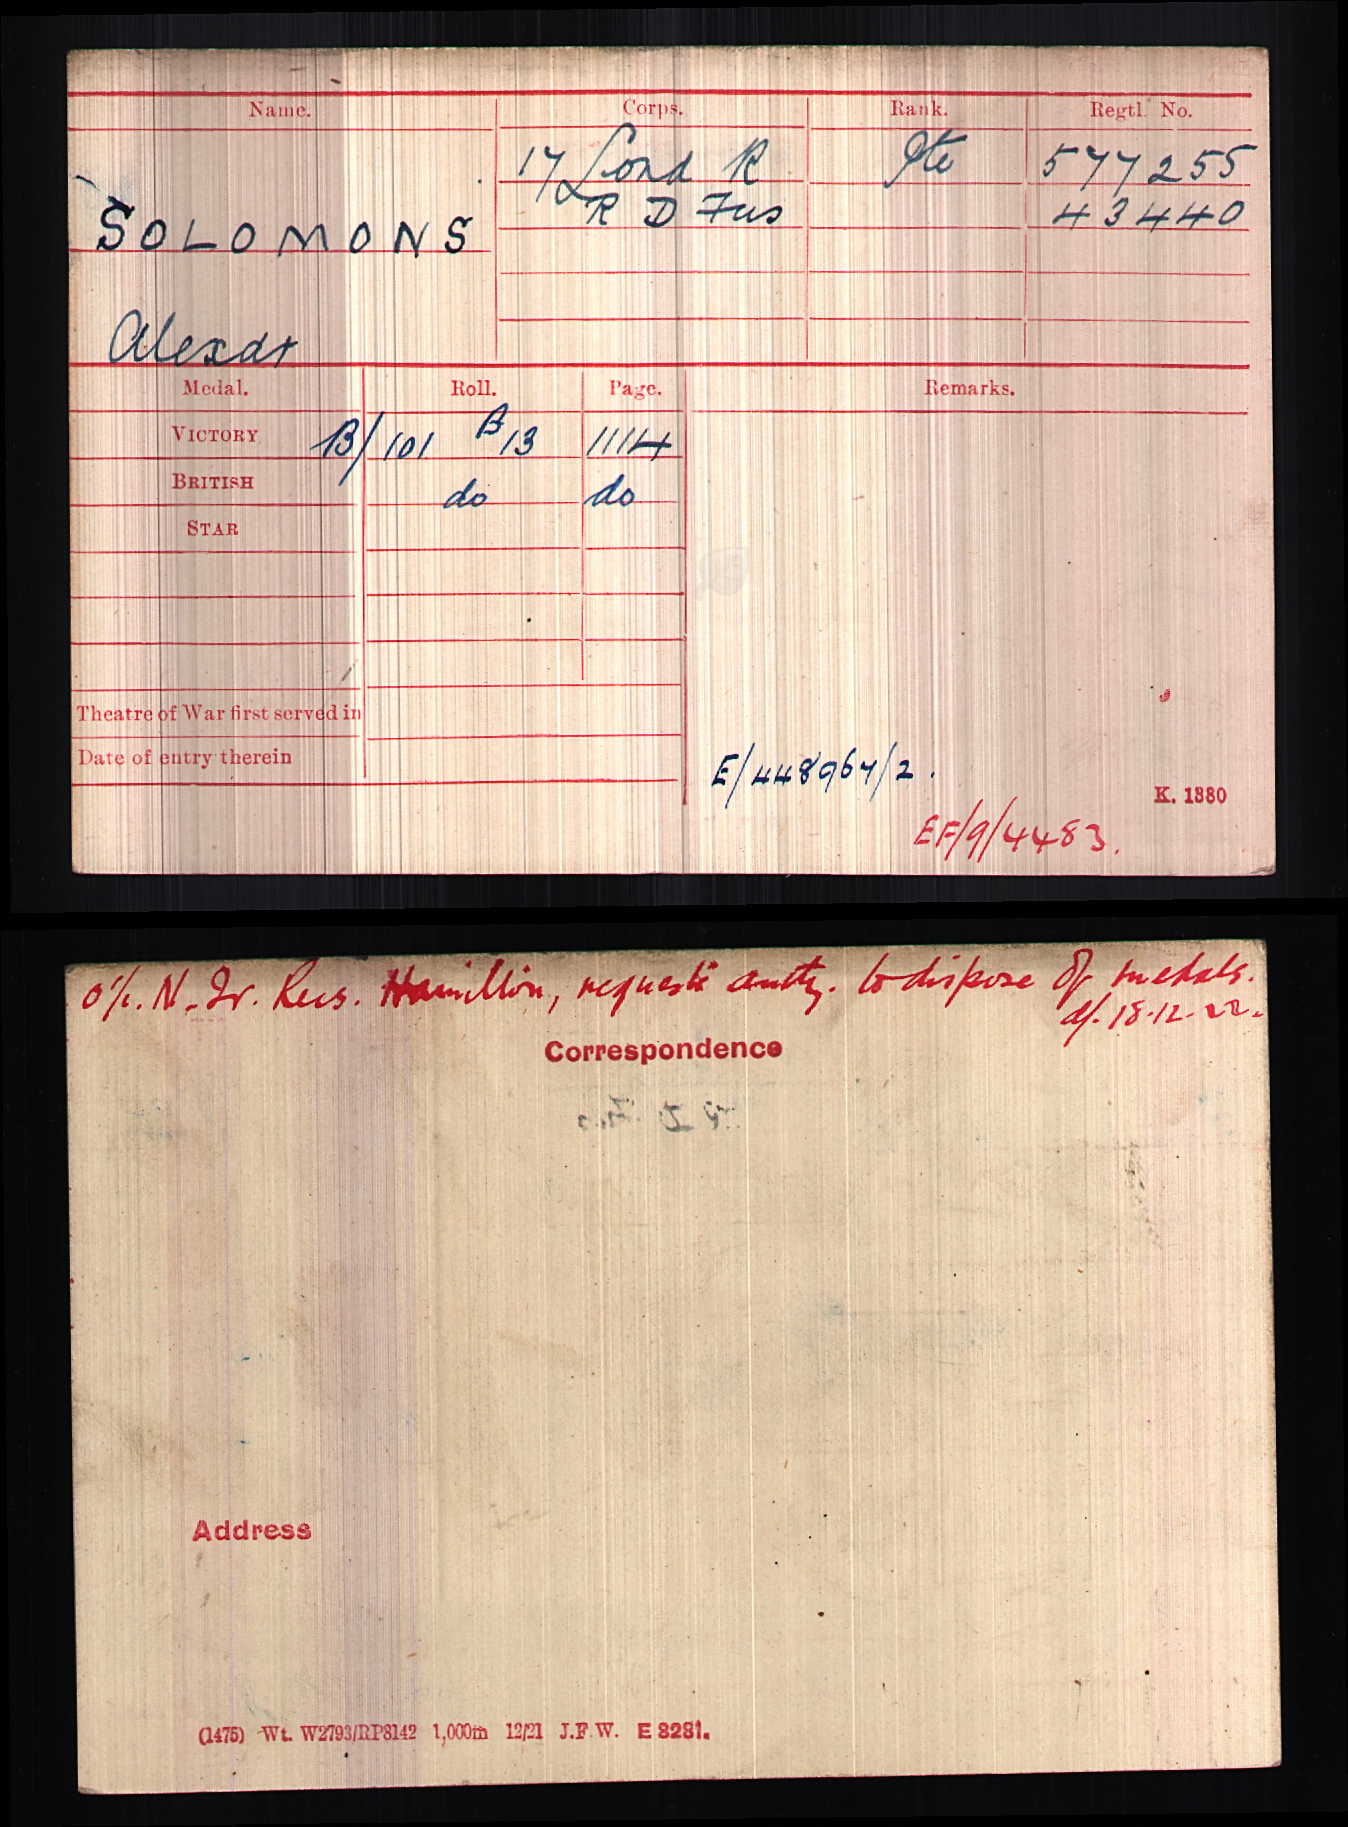 Name. Corps. Rank. Regtl. No.
17 Lond R Pte 577255
R D Fus 43440
SOLOMONS
Alexdr
Medal. Roll. Page. Remarks.
VICTORY B/101 B13 1114
BRITISH do do
STAR
Theatre of War first served in
Date of entry therein
E/448967/2.
K. 1380
EF/9/4483.
o/c. N. Ir. Recs. Hamilton, requests authy. to dispose of medals.
d/. 18.12.22.
Correspondence
Address
(1475) Wt. W2793/RP8142 1,000m 12/21 J.F.W. E 8281.